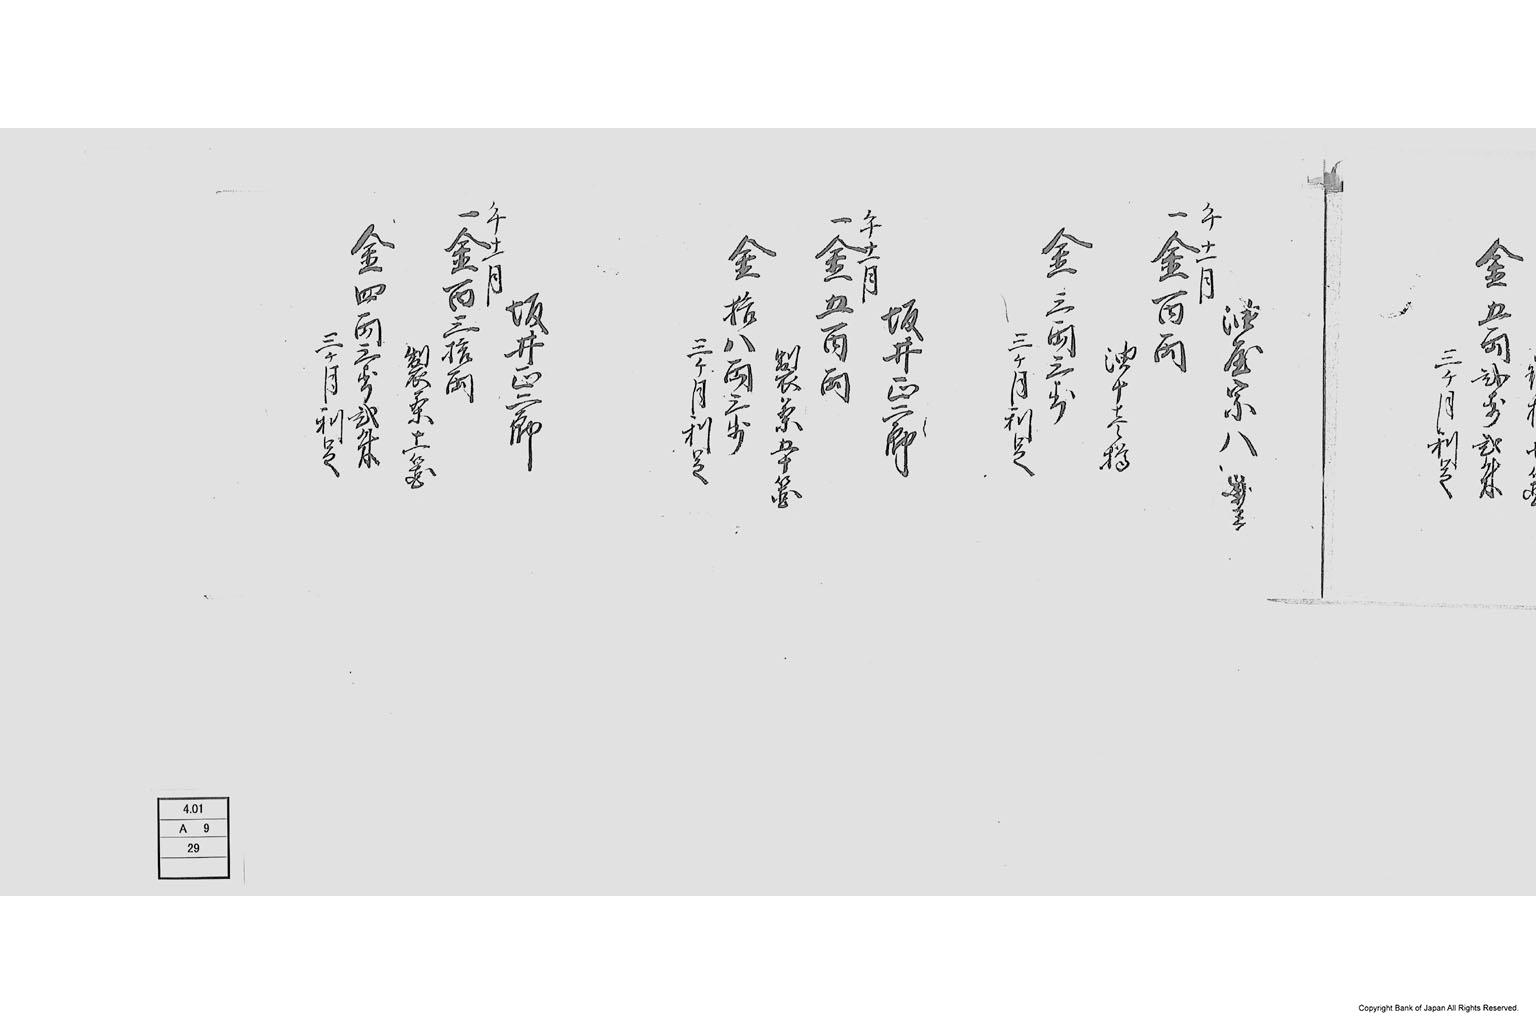 金五両弐歩弐朱
三ヶ月利足
油屋宗八
午十一月
一金百両
金三両三歩
三ヶ月利足
坂井正二郎
午十一月
一金五百両
製茶五十箇
金拾八両三歩
三ヶ月利足
坂井正二郎
午十一月
一金百三拾両
製茶十一箇
金四両三歩弐朱
三ヶ月利足
4.01
A 9
29
Copyright Bank of Japan All Rights Reserved.